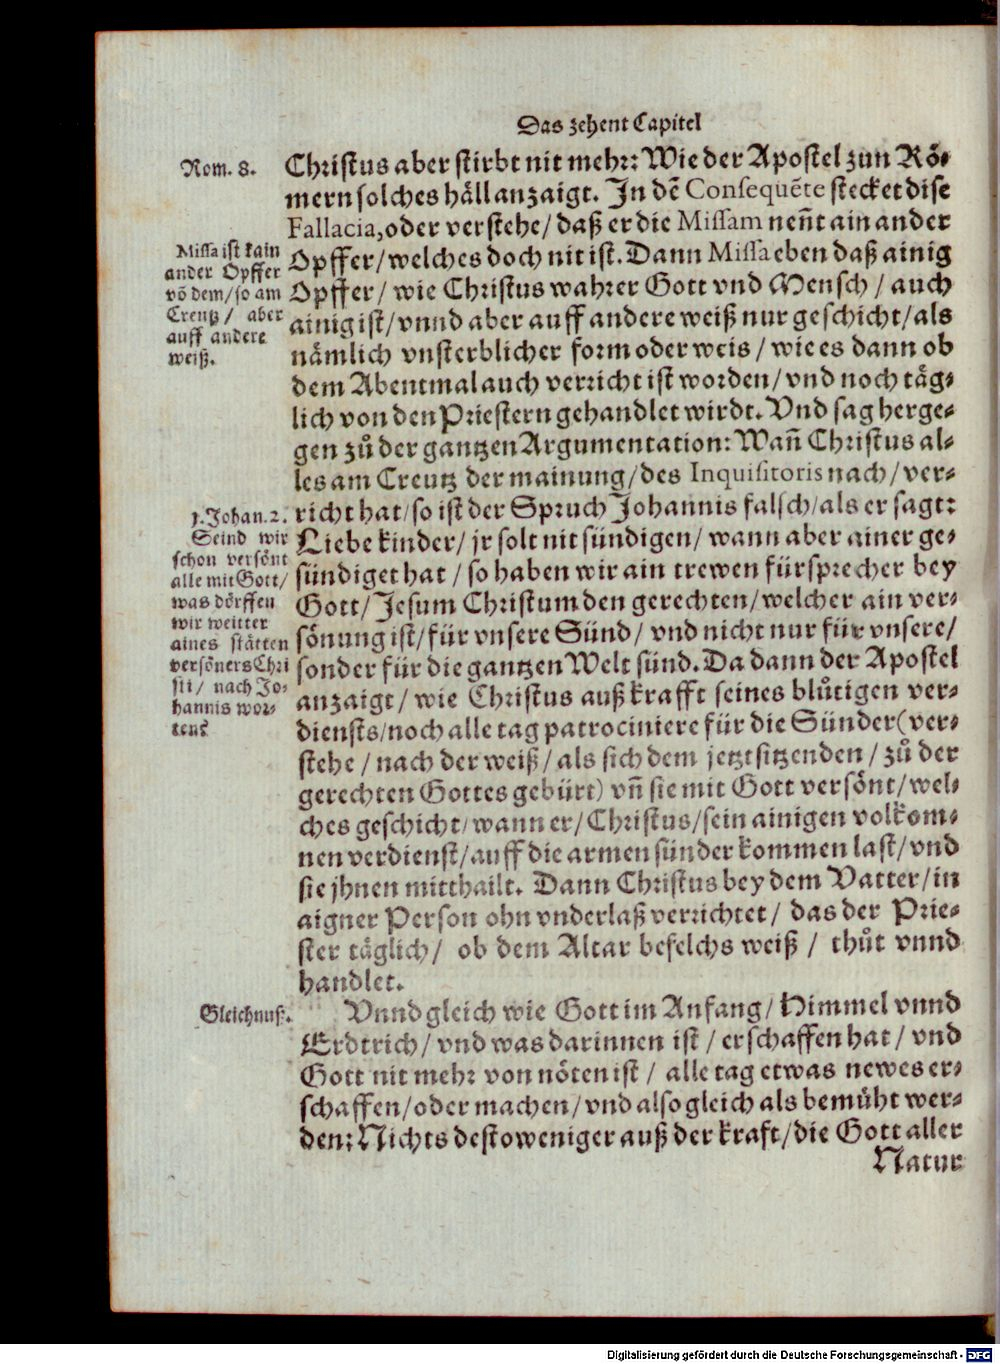 Das zehent Capitel
Rom. 8.
Christus aber stirbt nit mehr: Wie der Apostel zun Rö⸗
mern solches häll anzaigt. In dẽ Consequẽte stecket dise
Fallacia, oder verstehe/ daß er die Missam neñt ain ander
Opffer/ welches doch nit ist. Dann Missa eben daß ainig
Opffer/ wie Christus wahrer Gott vnd Mensch/ auch
ainig ist/ vnnd aber auff andere weiß nur geschicht/ als
nämlich vnsterblicher form oder weis/ wie es dann ob
dem Abentmal auch verricht ist worden/ vnd noch täg⸗
lich von den Priestern gehandlet wirdt. Vnd sag herge⸗
gen zů der gantzen Argumentation: Wañ Christus al⸗
les am Creutz der mainung/ des Inquisitoris nach/ ver⸗
richt hat/ so ist der Spruch Johannis falsch/ als er sagt:
Liebe kinder/ jr solt nit sündigen/ wann aber ainer ge⸗
sündiget hat/ so haben wir ain trewen fürsprecher bey
Gott/ Jesum Christum den gerechten/ welcher ain ver⸗
sönung ist/ für vnsere Sünd/ vnd nicht nur für vnsere/
sonder für die gantzen Welt sünd. Da dann der Apostel
anzaigt/ wie Christus auß krafft seines blůtigen ver⸗
diensts/ noch alle tag patrociniere für die Sünder (ver⸗
stehe/ nach der weiß/ als sich dem jetzt sitzenden/ zů der
gerechten Gottes gebürt) vñ sie mit Gott versönt/ wel⸗
ches geschicht/ wann er/ Christus/ sein ainigen volkom⸗
nen verdienst/ auff die armen sünder kommen last/ vnd
sie jhnen mitthailt. Dann Christus bey dem Vatter/ in
aigner Person ohn vnderlaß verrichtet/ das der Prie⸗
ster täglich/ ob dem Altar befelchs weiß/ thůt vnnd
handlet.
Missa ist kain
ander Opffer
võ dem/ so am
Creutz/ aber
auff andere
weiß.
1. Johan. 2.
Seind wir
schon versönt
alle mit Gott/
was dörffen
wir weitter
aines stätten
versöners Chri
sti/ nach Jo⸗
hannis wor⸗
ten?
Gleichnuß.
Vnnd gleich wie Gott im Anfang/ Himmel vnnd
Erdtrich/ vnd was darinnen ist/ erschaffen hat/ vnd
Gott nit mehr von nöten ist/ alle tag etwas newes er⸗
schaffen/ oder machen/ vnd also gleich als bemüht wer⸗
den: Nichts destoweniger auß der kraft/ die Gott aller
Natur
Digitalisierung gefördert durch die Deutsche Forschungsgemeinschaft - DFG